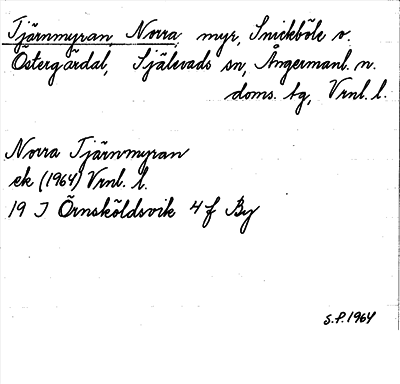 Tjärnmyran, Norra myr, Snickböle o.
Östergårdal, Själevads sn, Ångermanl. n.
doms. tg, Vrnl. l.
Norra Tjärnmyran
ek (1964) Vrnl. l.
19 J Örnsköldsvik 4 f By
S.P. 1964